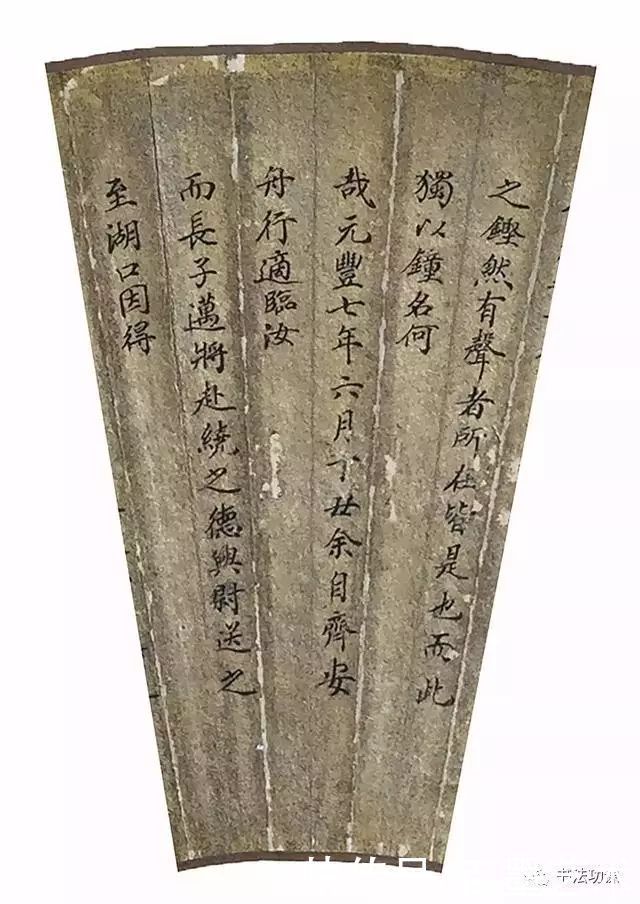 之鏗然有聲者所在皆是也而此
獨以鐘名何
哉元豐七年六月丁丑余自齊安
舟行適臨汝
而長子邁將赴繞之德興尉送之
至湖口因得
书法功课